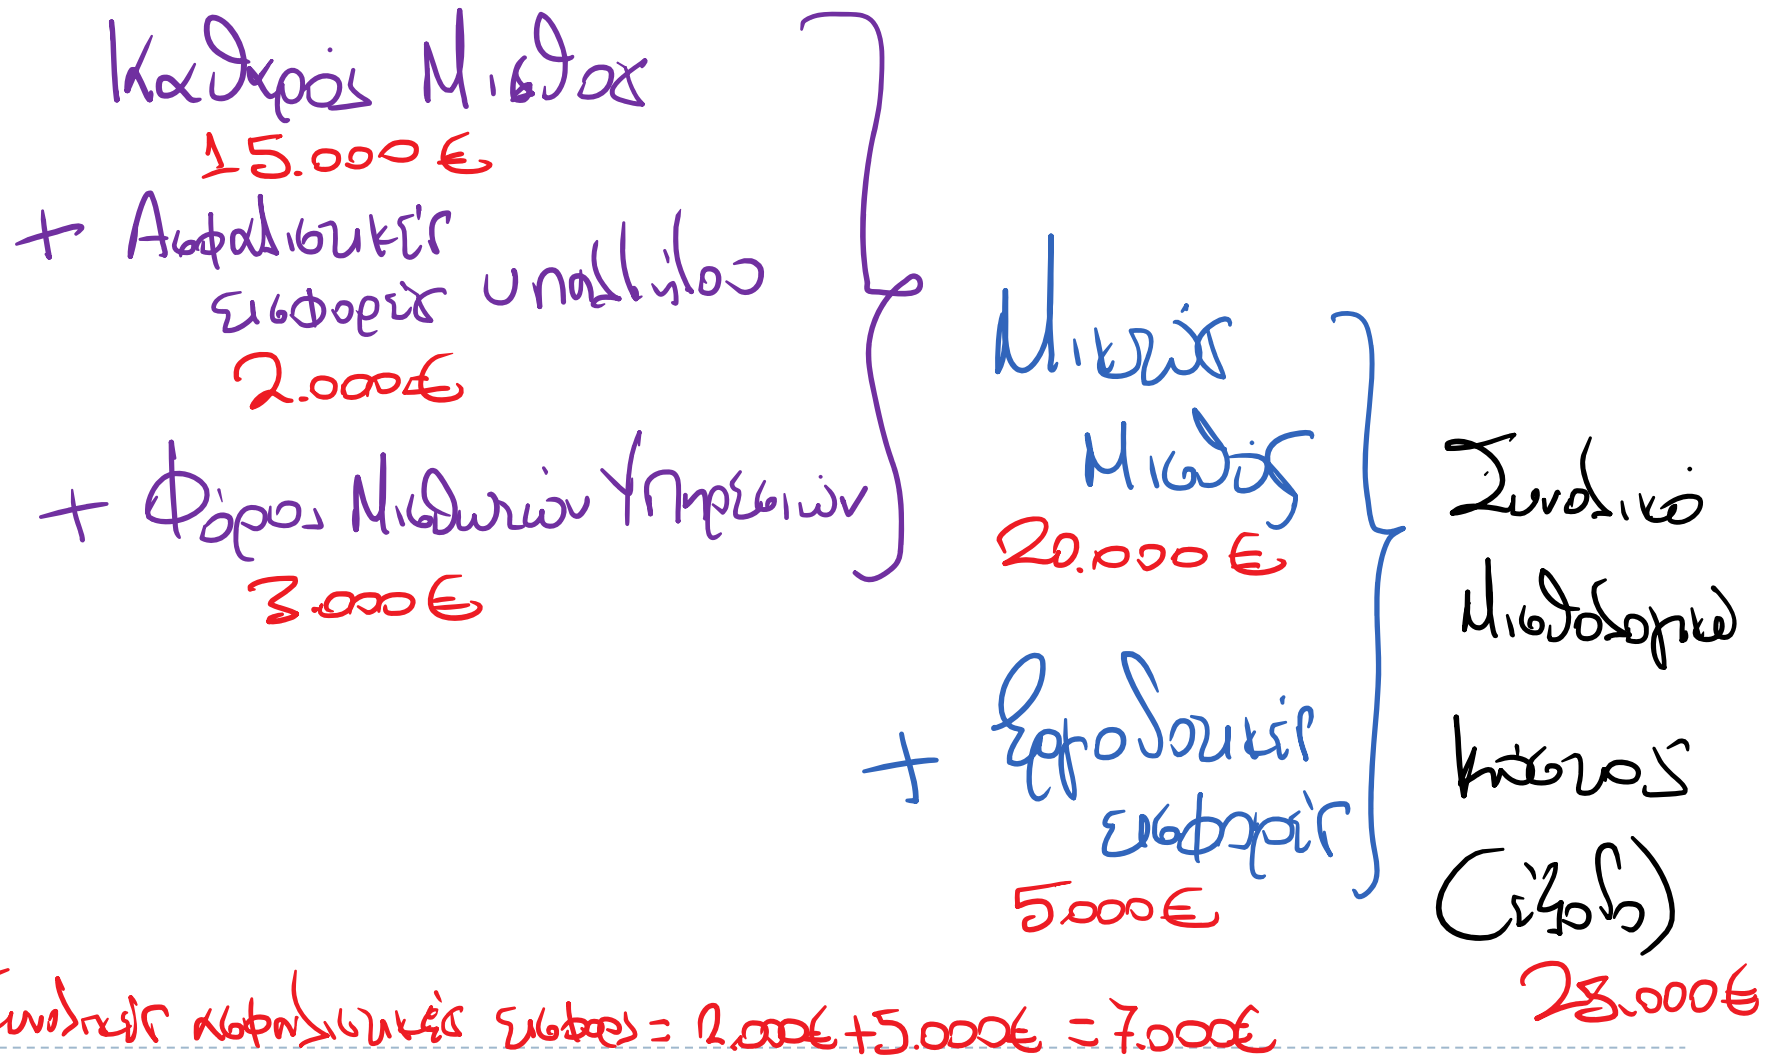 Καθαρός Μισθος
15.000 €
+ Ασφαλιστικές
εισφορές υπαλλήλου
2.000€
+ Φόρος Μισθωτών Υπηρεσιών
3.000€
Μικτός
Μισθός
20.000 €
+ Εργοδοτικές
εισφορές
5.000€
Συνολικό
Μισθολογικό
κόστος
(έξοδο)
25.000€
Συνολικές ασφαλιστικές εισφορές = 2.000€ + 5.000€ = 7.000€